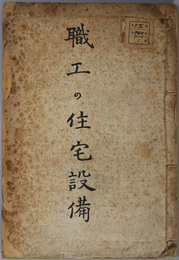 職工の住宅設備